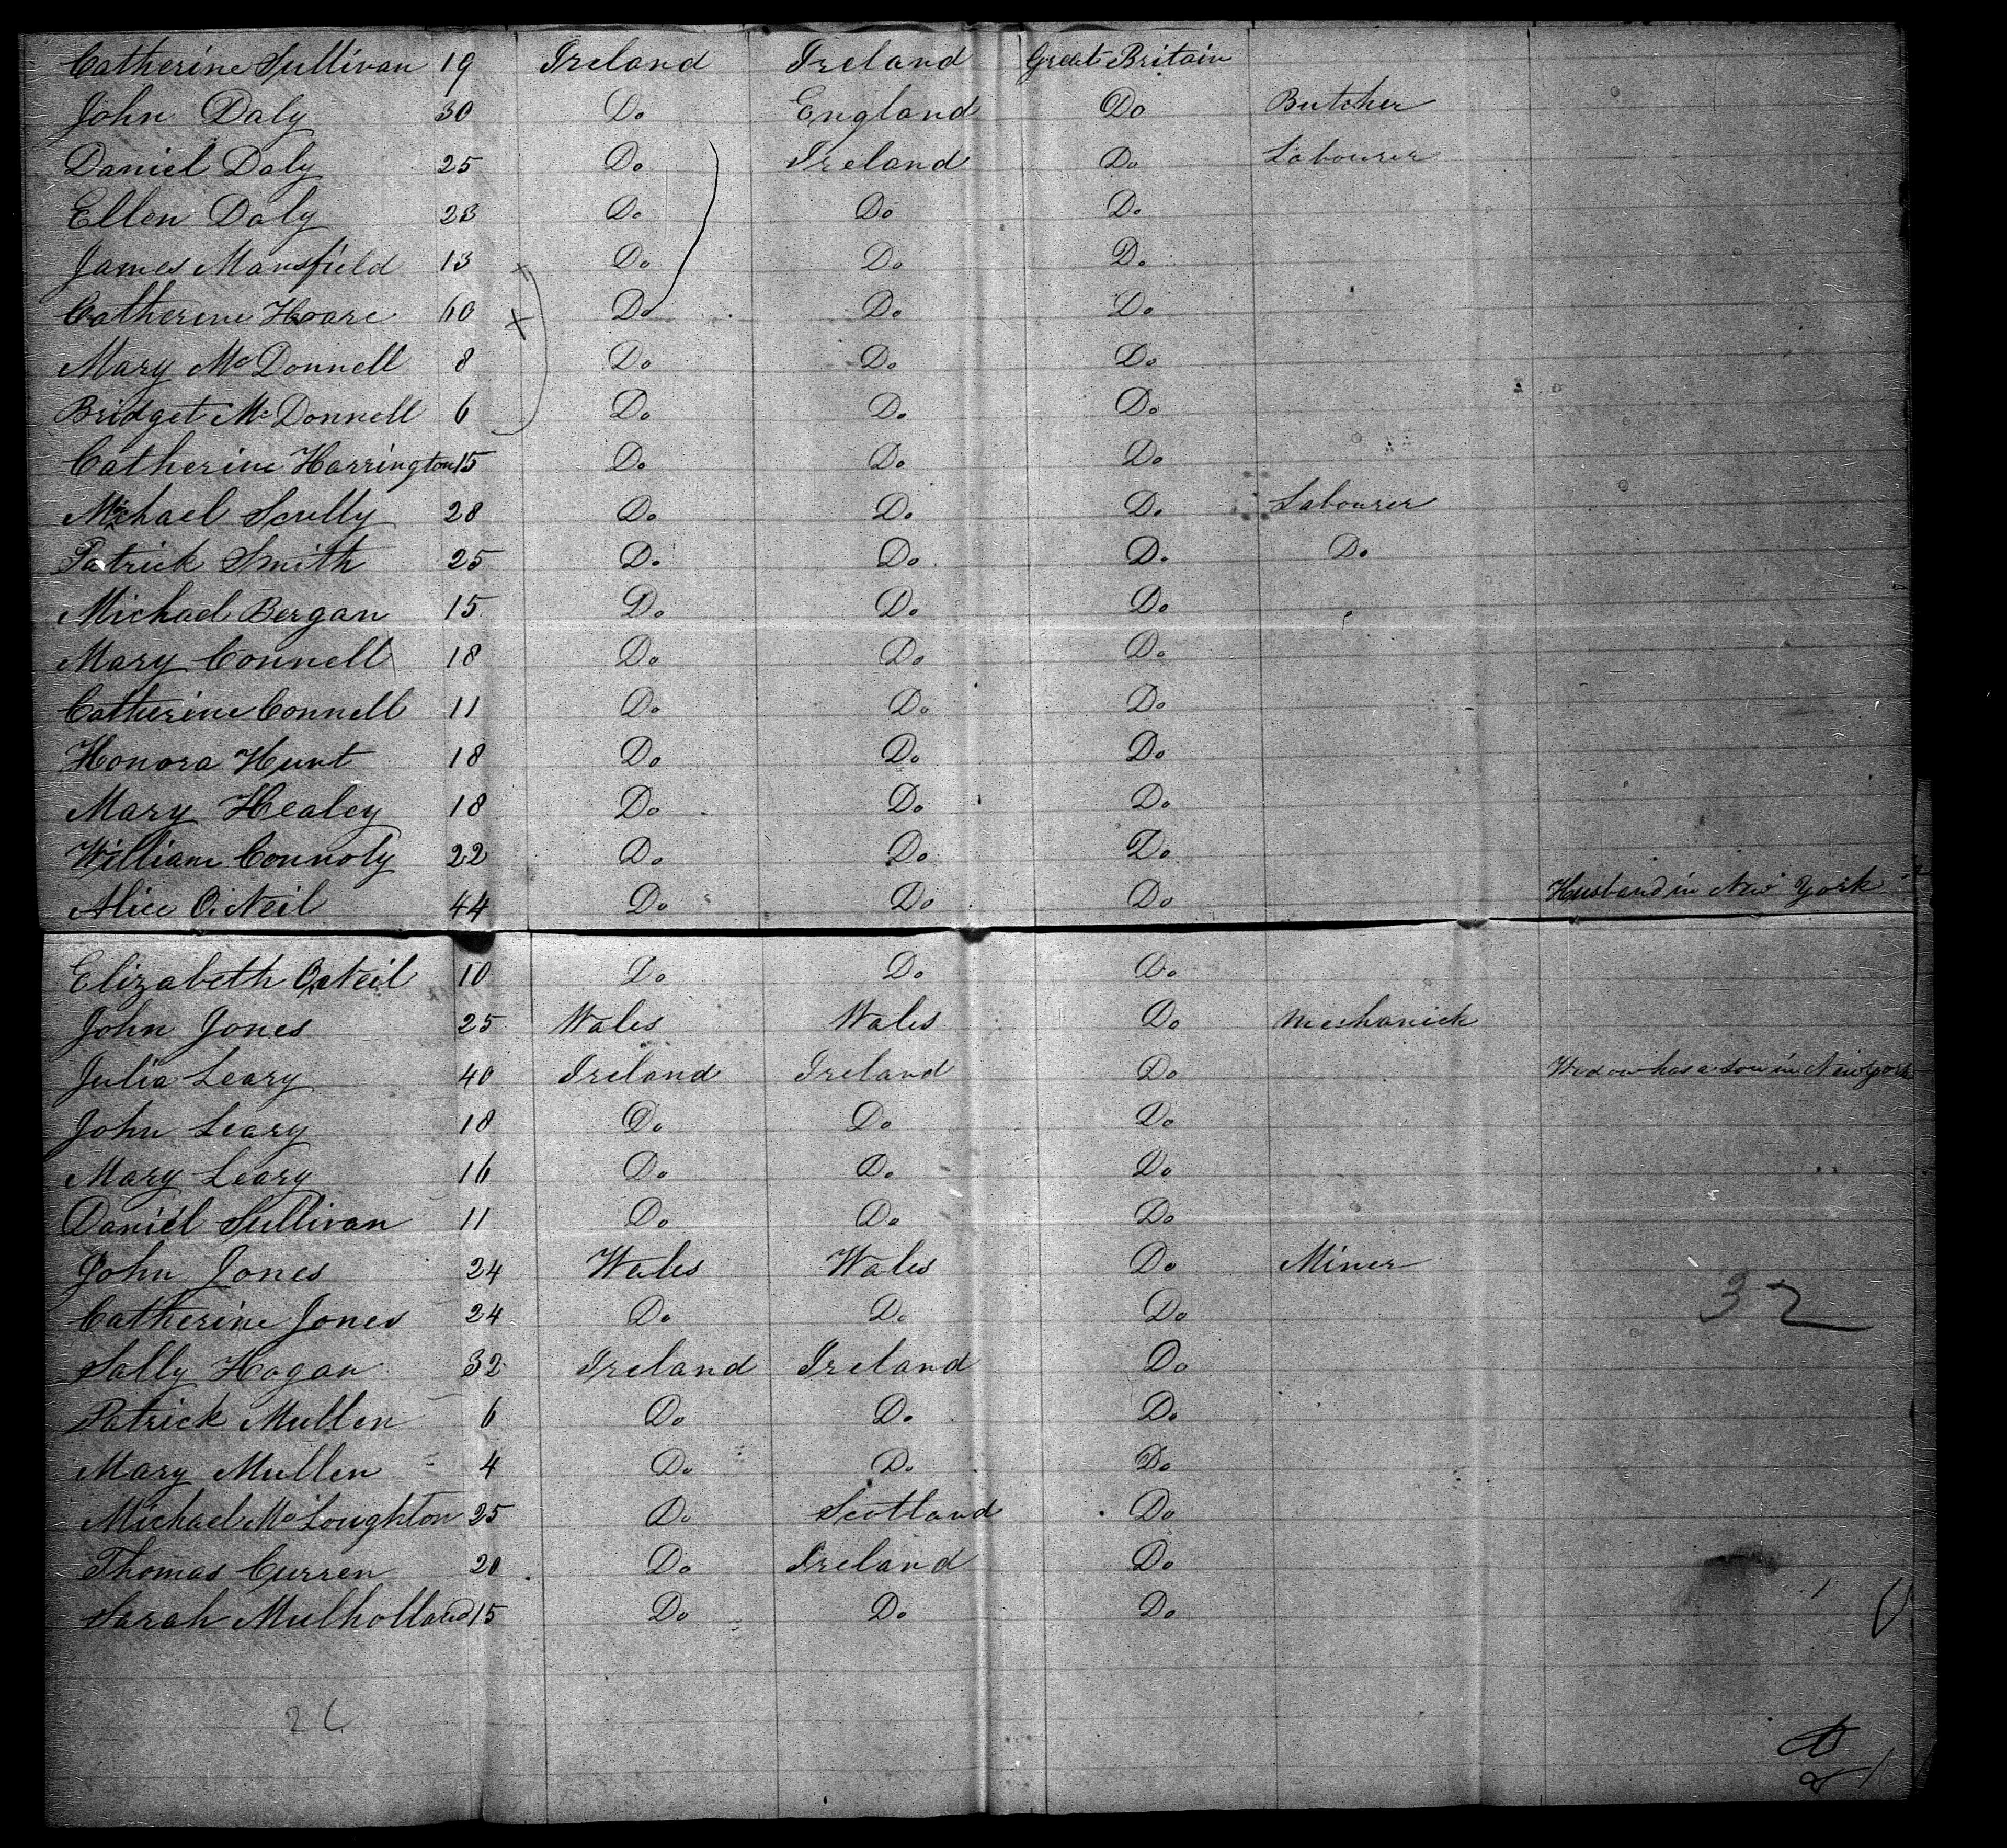 Catherine Sullivan 19 Ireland Ireland Great Britain
John Daly 30 Do England Do Butcher
Daniel Daly 25 Do Ireland Do Labourer
Ellen Daly 23 Do Do Do
James Mansfield 13 Do Do Do
Catherine Hoare 60 Do Do Do
Mary McDonnell 8 Do Do Do
Bridget McDonnell 6 Do Do Do
Catherine Harrington 15 Do Do Do
Michael Scully 28 Do Do Do Labourer
Patrick Smith 25 Do Do Do Do
Michael Bergan 15 Do Do Do
Mary Connell 18 Do Do Do
Catherine Connell 11 Do Do Do
Honora Hunt 18 Do Do Do
Mary Healey 18 Do Do Do
William Connoly 22 Do Do Do
Alice O'Neil 44 Do Do Do Husband in New York
Elizabeth O'Neil 10 Do Do Do
John Jones 25 Wales Wales Do Mechanick
Julia Leary 40 Ireland Ireland Do Widow has a son in New York
John Leary 18 Do Do Do
Mary Leary 16 Do Do Do
Daniel Sullivan 11 Do Do Do
John Jones 24 Wales Wales Do Miner
Catherine Jones 24 Do Do Do
32
Sally Hogan 32 Ireland Ireland Do
Patrick Mullen 6 Do Do Do
Mary Mullen 4 Do Do Do
Michael McLoughton 25 Do Scotland Do
Thomas Curren 20 Do Ireland Do
Sarah Mulholland 15 Do Do Do